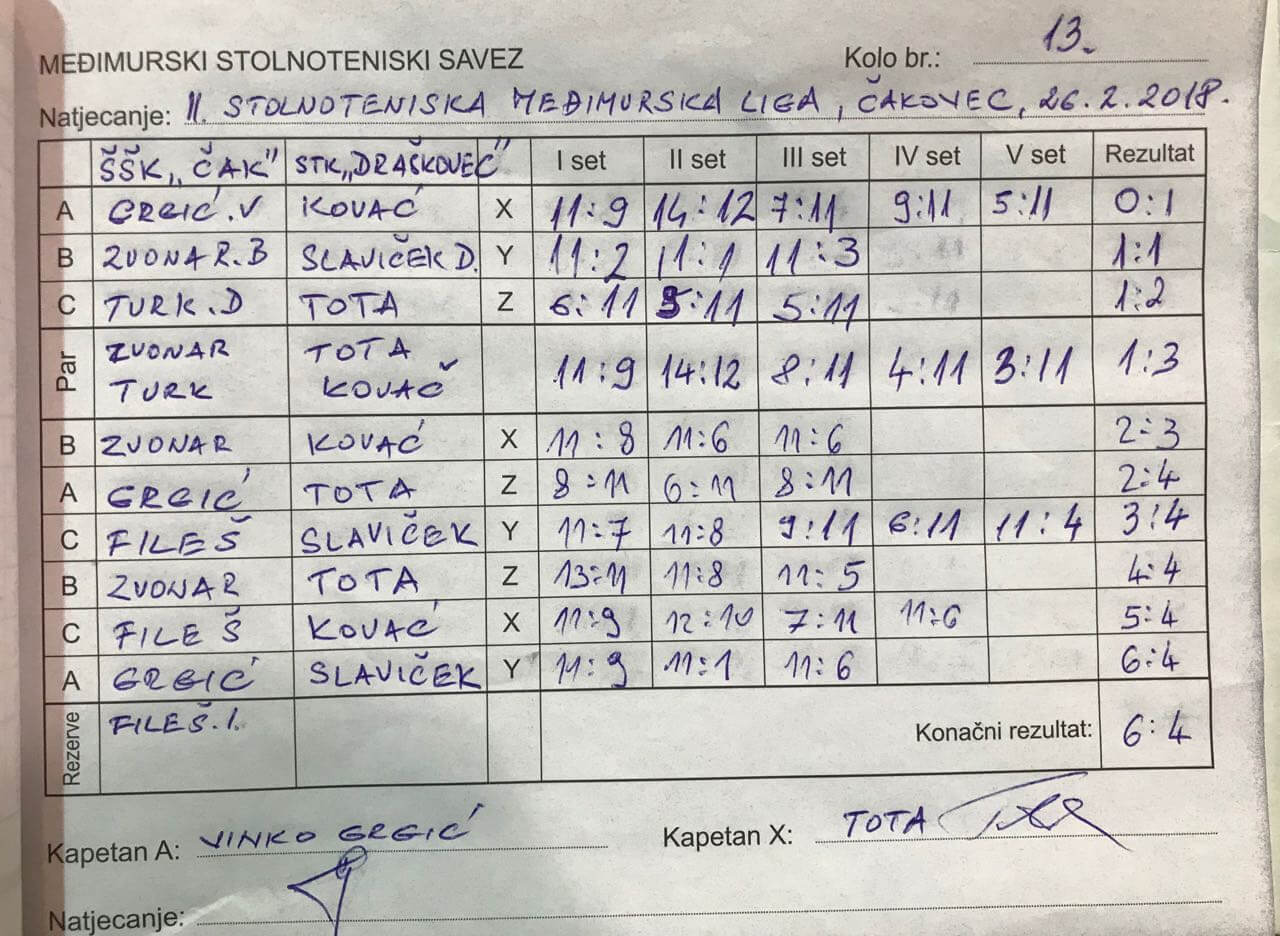 MEĐIMURSKI STOLNOTENISKI SAVEZ Kolo br.: 13.
Natjecanje: II. STOLNOTENISKA MEĐIMURSKA LIGA, ČAKOVEC, 26.2.2018.
ŠŠK „ČAK" STK „DRAŠKOVEC" I set II set III set IV set V set Rezultat
A GRGIĆ.V KOVAČ X 11:9 14:12 7:11 9:11 5:11 0:1
B ZVONAR.B SLAVIČEK D. Y 11:2 11:1 11:3 1:1
C TURK.D TOTA Z 6:11 5:11 5:11 1:2
Par ZVONAR TOTA 11:9 14:12 8:11 4:11 3:11 1:3
TURK KOVAČ
B ZVONAR KOVAČ X 11:8 11:6 11:6 2:3
A GRGIĆ TOTA Z 8:11 6:11 8:11 2:4
C FILEŠ SLAVIČEK Y 11:7 11:8 9:11 6:11 11:4 3:4
B ZVONAR TOTA Z 13:11 11:8 11:5 4:4
C FILEŠ KOVAČ X 11:9 12:10 7:11 11:6 5:4
A GRGIĆ SLAVIČEK Y 11:9 11:1 11:6 6:4
Rezerve FILEŠ.I. Konačni rezultat: 6:4
Kapetan A: VINKO GRGIĆ Kapetan X: TOTA
Natjecanje: